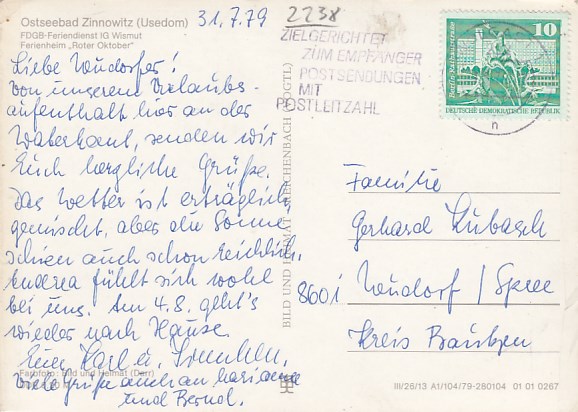 Ostseebad Zinnowitz (Usedom)
FDGB-Feriendienst IG Wismut
Ferienheim „Roter Oktober"
31.7.79
2238
ZIELGERICHTET
ZUM EMPFÄNGER
POSTSENDUNGEN
MIT
POSTLEITZAHL
10
DEUTSCHE DEMOKRATISCHE REPUBLIK
Liebe
von unserem Urlaubs-
aufenthalt hier an der
Waterkant, senden wir
Euch herzliche Grüße.
Das Wetter ist erträglich
gemischt, aber die Sonne
schien auch schon reichlich.
Andrea fühlt sich wohl
bei uns. Am 4.8. geht's
wieder nach Hause.
Eure
Viele Grüße auch an
und Bernd.
Familie
Gerhard Lubasch
8601
/ Spree
Kreis Bautzen
BILD UND HEIMAT REICHENBACH (VOGTL)
Farbfoto: Bild und Heimat (Darr)
III/26/13 A1/104/79-280104 01 01 0267